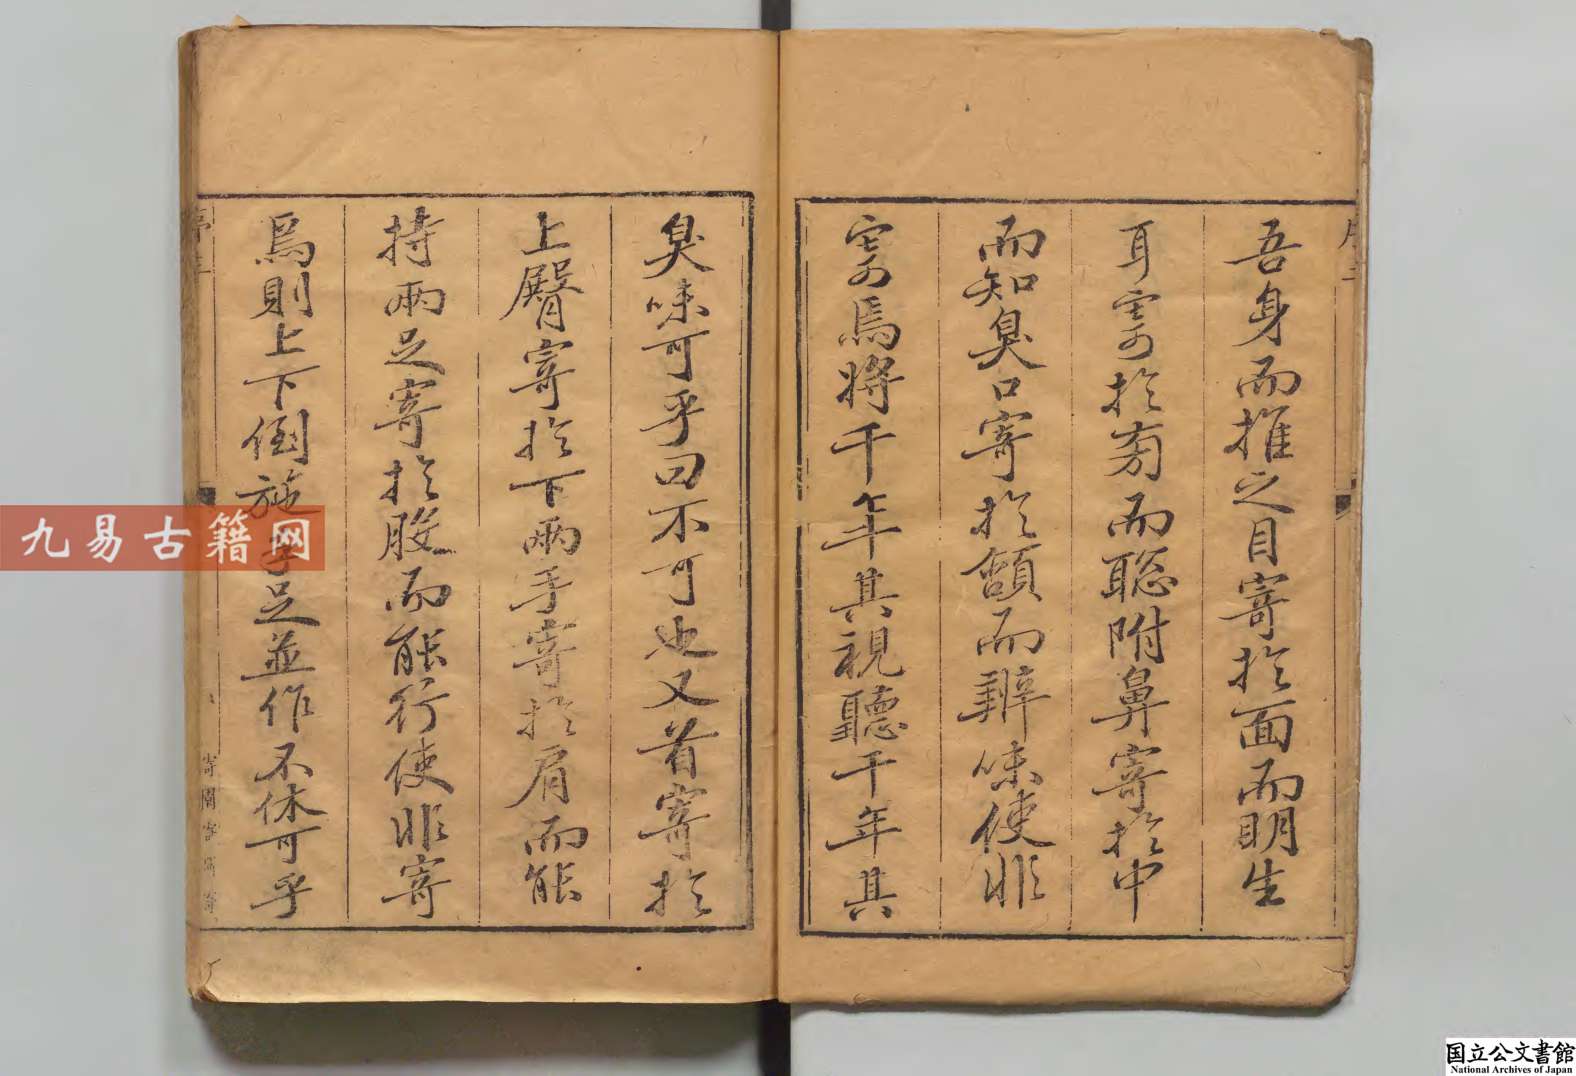 吾身而推之目寄於面而明生
耳寄於旁而聡附鼻寄於中
而知臭口寄於頷而辨味使非
寄焉将千年其視聽千年其
臭味可乎曰不可也又首寄於
上臀寄於下兩手寄於肩而能
持兩足寄於股而能行使非寄
焉則上下倒施 足並作不休可乎
九易古籍网
国立公文書館
National Archives of Japan